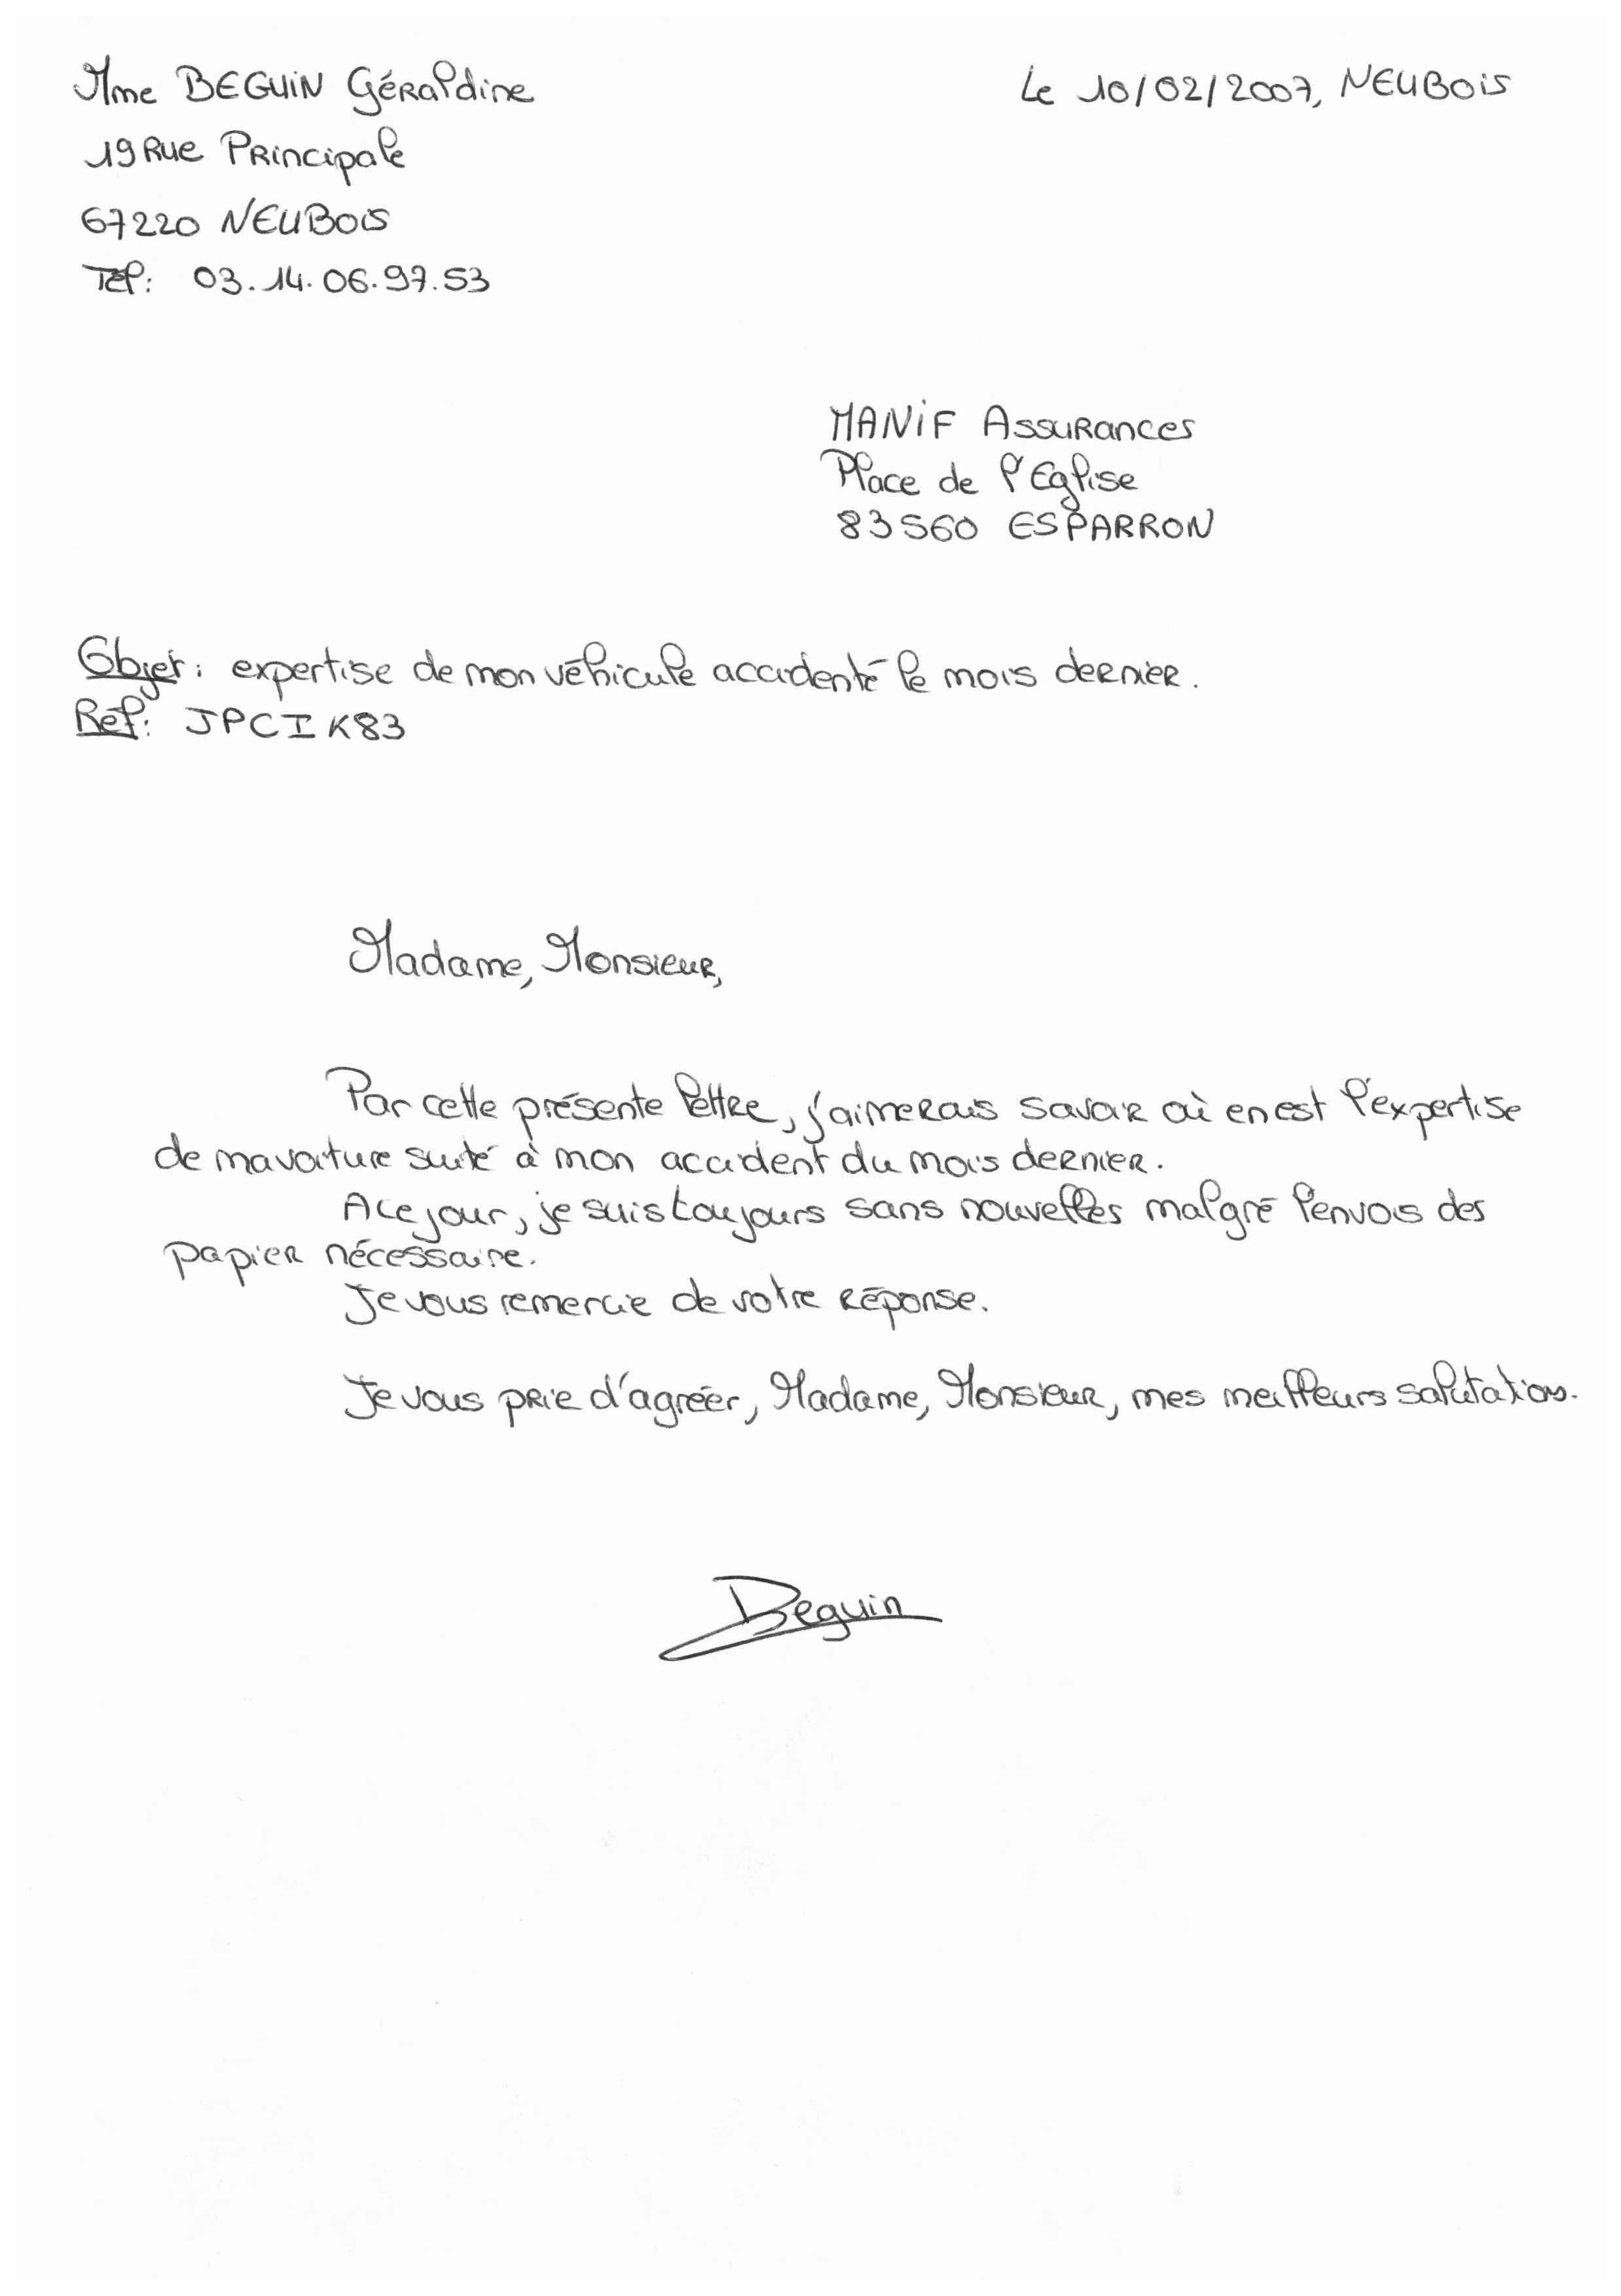 Mme BEGUIN Géraldine
Le 10/02/2007, NEUBOIS
19 Rue Principale
67220 NEUBOIS
Tél: 03.14.06.97.53
MANIF Assurances
Place de l'Eglise
83560 ESPARRON
Objet: expertise de mon véhicule accidenté le mois dernier.
Réf: JPCIK83
Madame, Monsieur,
Par cette présente lettre, j'aimerais savoir où en est l'expertise
de ma voiture suité à mon accident du mois dernier.
A ce jour, je suis toujours sans nouvelles malgré l'envois des
papier nécessaire.
Je vous remercie de votre réponse.
Je vous prie d'agréer, Madame, Monsieur, mes meilleurs salutations.
Beguin